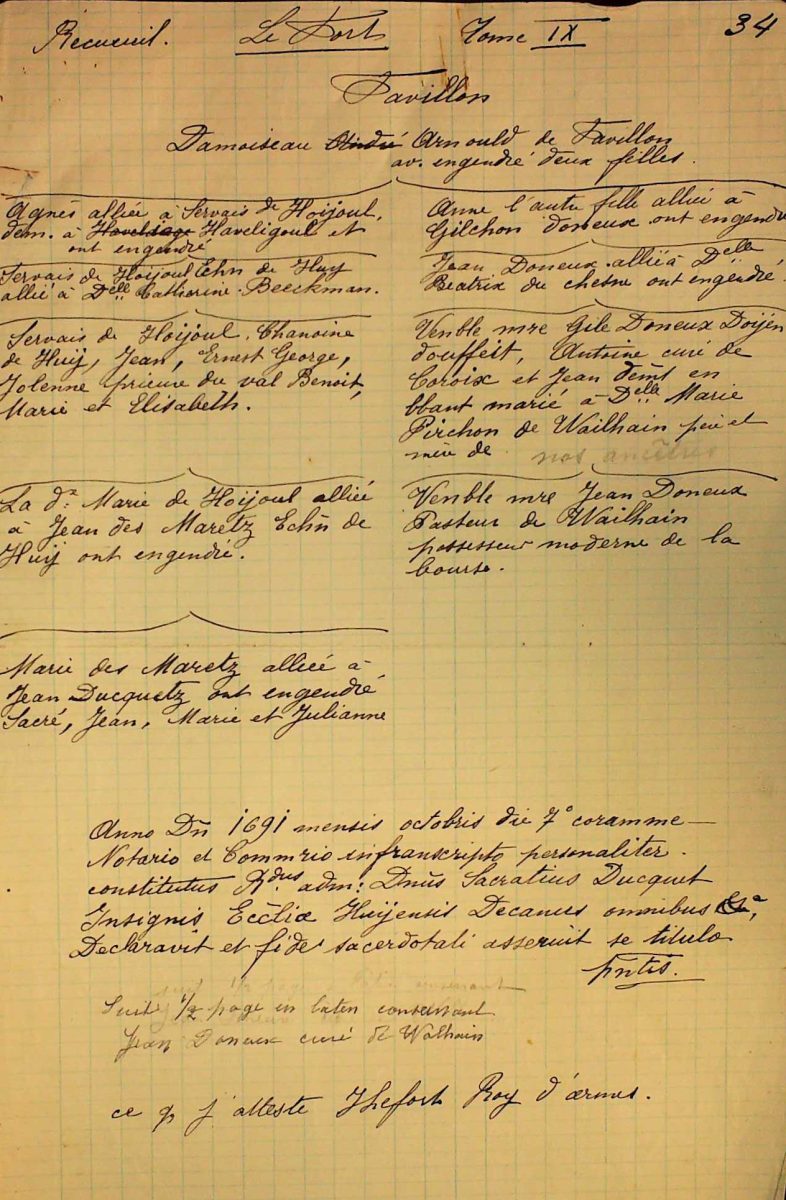 Recueuil. Le Fort Tome IX 34
Favillon
Damoiseau André Arnould de Favillon
av. engendré deux filles.
Agnès alliée à Servais de Hoijoul,
dem. à Haveligoul et
ont engendré
Servais de Hoijoul Echn de Huy
allié à Delle Catherine Beeckman.
Servais de Hoijoul, Chanoine
de Huij, Jean, Ernest George,
Jolenne prieure du val Benoit,
Marie et Elisabeth.
La de Marie de Hoijoul alliée
à Jean des Maretz Echn de
Huij ont engendré.
Marie des Maretz alliée à
Jean Ducquetz ont engendré
Sacré, Jean, Marie et Julianne
Anne l'autre fille alliée à
Gilchon doneux ont engendré
Jean Doneux allié à Delle
Beatrix du chesne ont engendré.
Venble mre Gile Doneux Doijen
douffeit, Antoine curé de
Coroix et Jean demt en
bbant marié à Delle Marie
Pirchon de Wailhain père et
mère de nos ancêtres
Venble mre Jean Doneux
Pasteur de Wailhain
possesseur moderne de la
bourse.
Anno Dni 1691 mensis octobris die 7° coramme
Notario et Commrio infranscripto personaliter
constitutus Rdus adm: Dnus Sacratius Ducquet
Insignis Eccliæ Huijensis Decanus omnibus &a,
Declaravit et fide sacerdotali asseruit se titulo
pntis.
Suit 1/2 page en laten concernant
Jean Doneux curé de Walhain
ce q j'atteste JHefort Roy d'armes.